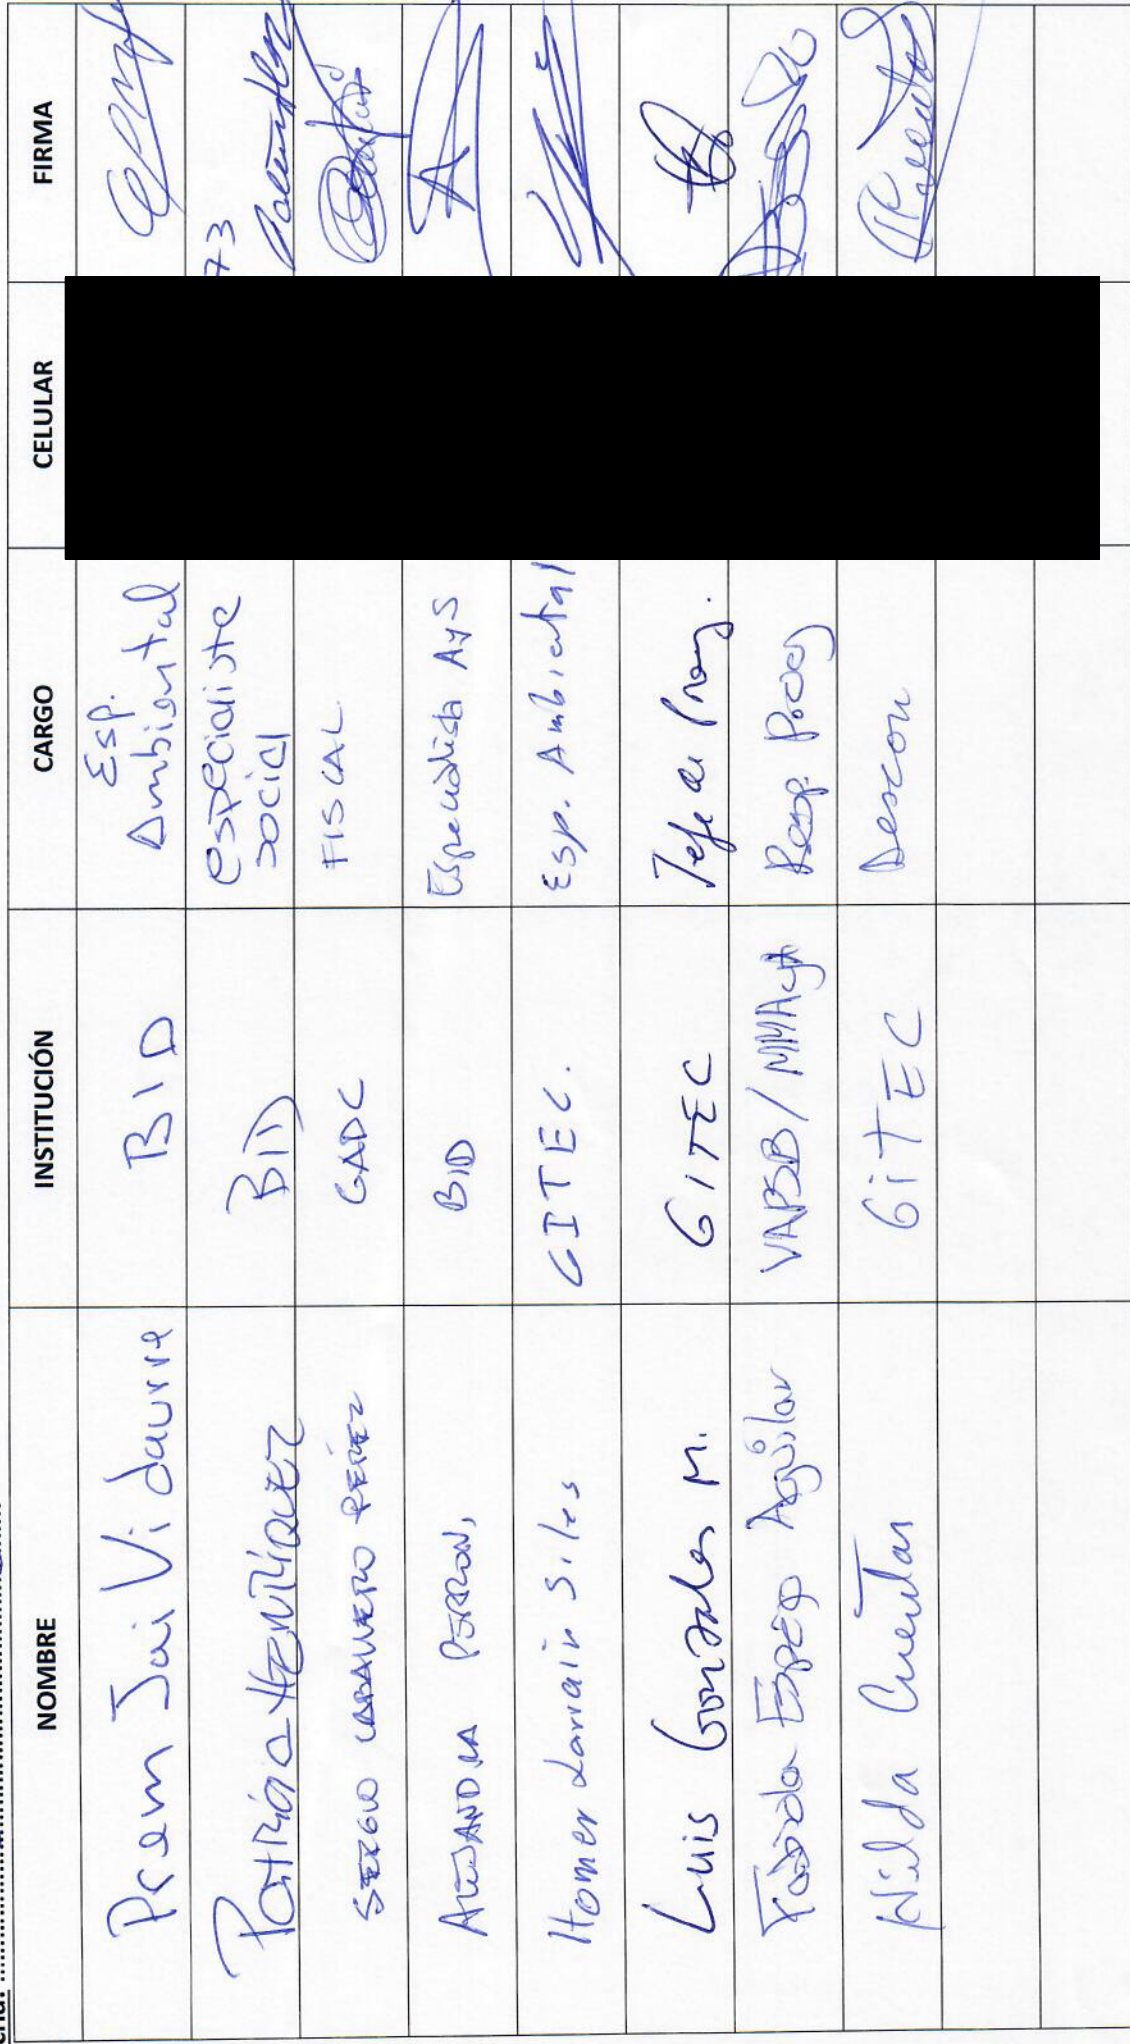 NOMBRE INSTITUCIÓN CARGO CELULAR FIRMA
Prem Jai Vidaurre BID Esp. Ambiental
Patricia Henríquez BID especialista social 73
SERGIO CABALLERO PÉREZ GADC FISCAL
ALEJANDRA PERRON, BID Especialista AyS
Homer Larrain Siles GITEC. Esp. Ambiental
Luis Gonzales M. GITEC Jefe de Proy.
Aguilar VAPSB/MMAyA Resp. Proy
Hilda Cuentas GiTEC Descom